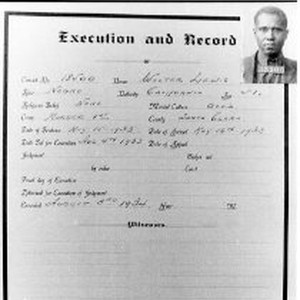 Execution and Record
Convict No. 18400 Name Walter Lewis
Race Negro Nativity California Age
Religious Belief None Mental Culture Good
Crime Murder 1st County Santa Clara
Date of Sentence May 15 1933 Date of Arrival May 16th 1933
Date Set for Execution Aug 4th 1933 Date of Appeal
Judgment
by order
Final day of Execution
Execution of Judgment
Executed August 3rd 1934 Hour M.
Witnesses